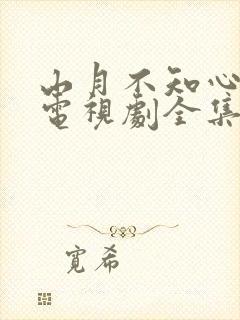 山月不知心
電視劇全集
寬希